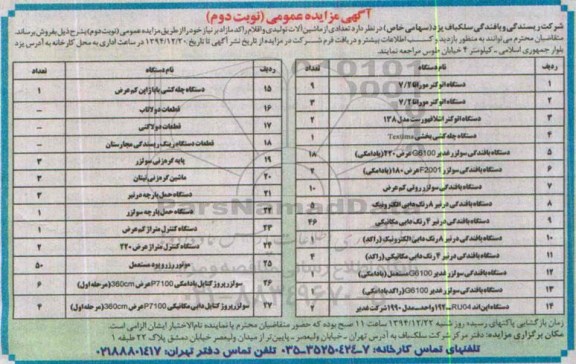 آگهی مزایده عمومی (نوبت دوم)
شرکت ریسندگی و بافندگی سلکباف یزد (سهامی خاص) در نظر دارد تعدادی از ماشین آلات تولیدی و اقلام راکد مازاد بر نیاز خود را از طریق مزایده عمومی (نوبت دوم) بشرح ذیل بفروش برساند.
متقاضیان محترم می توانند به منظور بازدید و کسب اطلاعات بیشتر و دریافت فرم شرکت در مزایده از تاریخ نشر آگهی تا تاریخ ۱۳۹۴/۱۲/۲۰ در ساعات اداری به محل کارخانه به آدرس یزد
بلوار جمهوری اسلامی - کیلومتر ۴ خیابان طوس مراجعه نمایند.
ردیف نام دستگاه تعداد
۱ دستگاه اتوکنر موراتا ۷/۲ ۹
۲ دستگاه اتوکنر موراتا ۷/۲ ۳
۳ دستگاه اتوکنر اشلافهورست مدل ۱۳۸ ۲
۴ دستگاه چله کشی بخشی Textima ۱
۵ دستگاه بافندگی سولزر غدیر G6100 عرض ۴۲۰ (بادامکی) ۱۸
۶ دستگاه بافندگی سولزر F2001 عرض ۱۸۰ (بادامکی) ۲
۷ دستگاه بافندگی سولزر روتی کم عرض ۱۰
۸ دستگاه بافندگی درنیر ۸ رنگ دابی الکترونیک ۵
۹ دستگاه بافندگی درنیر ۴ رنگ دابی مکانیکی ۴۶
۱۰ دستگاه بافندگی درنیر ۸ رنگ دابی الکترونیک (راکد)
۱۱ دستگاه بافندگی درنیر ۴ رنگ دابی مکانیکی (راکد) ۴
۱۲ دستگاه بافندگی سولزر غدیر G6100 مستعمل (بادامکی)
۱۳ دستگاه بافندگی سولزر غدیر G6100 (راکد بادامکی)
۱۴ دستگاه اپن اند RU04-۱۹۲ واحد - مدل ۱۹۹۰ شرکت غدیر ۲
ردیف نام دستگاه تعداد
۱۵ دستگاه چله کشی با باژاژ این کم عرض ۱
۱۶ قطعات دولاتاب -
۱۷ قطعات دولاکنی -
۱۸ قطعات دستگاه رینگ ریسندگی مجارستان -
۱۹ پایه گره زنی سولزر ۳
۲۰ ماشین گره زنی تیتان ۳
۲۱ دستگاه حمل پارچه درنیر ۳
۲۲ دستگاه حمل پارچه سولزر ۱
۲۳ دستگاه کنترل متراژ کم عرض ۱
۲۴ دستگاه کنترل متراژ عرض ۲۲۰ ۲
۲۵ موتور رزرو پود مستعمل ۵۰
۲۶ سولزر پروژکتایل بادامکی P7100 عرض 360cm (مرحله اول) ۶
۲۷ سولزر پروژکتایل دابی مکانیکی P7100 عرض 360cm (مرحله اول) ۴
زمان بازگشایی پاکتهای رسیده: روز شنبه ۱۳۹۴/۱۲/۲۲ ساعت ۱۱ صبح بوده که حضور متقاضیان محترم یا نماینده تام الاختیار ایشان الزامی است.
مکان برگزاری مزایده: دفتر مرکزی شرکت سلکباف به آدرس تهران - خیابان ولیعصر - پایین تر از میدان ولیعصر خیابان دمشق پلاک ۲۲ طبقه ۱
تلفن های تماس کارخانه: ۷-۳۵۲۵۰۴۲۴-۰۳۵ تلفن تماس دفتر تهران: ۰۲۱۸۸۸۰۱۴۱۷